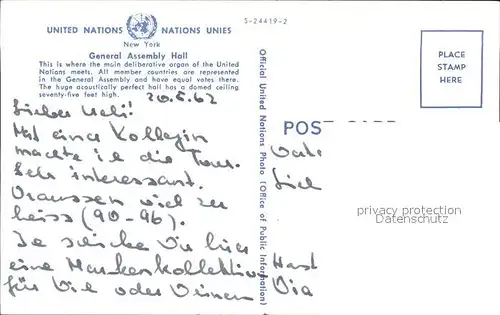 S-24419-2
UNITED NATIONS NATIONS UNIES
New York
General Assembly Hall
This is where the main deliberative organ of the United
Nations meets. All member countries are represented
in the General Assembly and have equal votes there.
The huge acoustically perfect hall has a domed ceiling
seventy-five feet high.
20.5.62
Lieber Ueli!
Mit einer Kollegin
machte ich die Tour.
Sehr interessant.
Draussen viel zu
heiss (90-96).
Je schicke Dir hier
eine Markenkollektion
für Die oder Deinen
Official United Nations Photo (Office of Public Information)
PLACE
STAMP
HERE
POS
privacy protection
Datenschutz